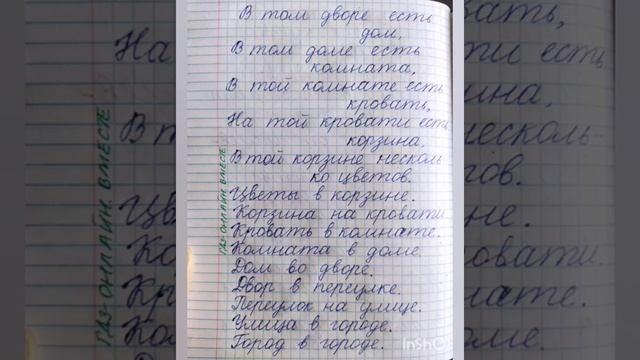 В том дворе есть
дом,
В том доме есть
комната,
В той комнате есть
кровать,
На той кровати есть
корзина,
В той корзине несколь
ко цветов.
Цветы в корзине.
Корзина на кровати
Кровать в комнате.
Комната в доме.
Дом во дворе.
Двор в переулке.
Переулок на улице.
Улица в городе.
Город в городе.
ОНЛАЙН. ВМЕСТЕ
InShO